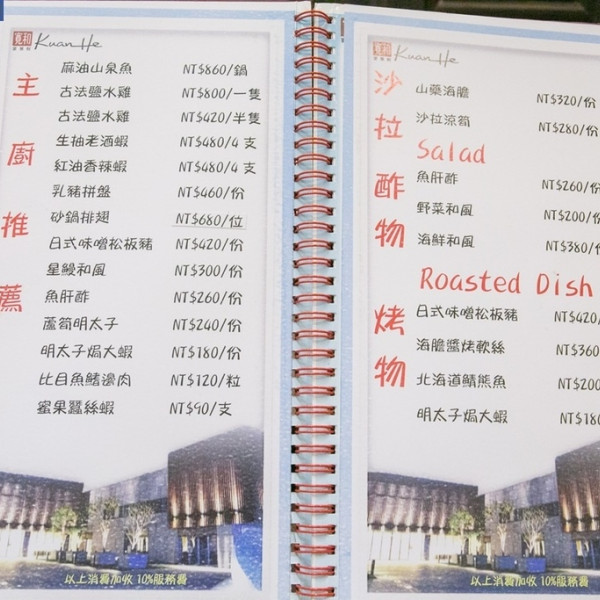 寬和
Kuan He
主廚推薦
麻油山泉魚 NT$860/鍋
古法鹽水雞 NT$800/一隻
古法鹽水雞 NT$420/半隻
生抽老酒蝦 NT$480/4支
紅油香辣蝦 NT$480/4支
乳豬拼盤 NT$460/份
砂鍋排翅 NT$680/位
日式味噌松板豬 NT$420/份
星鰻和風 NT$300/份
魚肝酢 NT$260/份
蘆筍明太子 NT$240/份
明太子焗大蝦 NT$180/份
比目魚鰭邊肉 NT$120/粒
蜜果蠶絲蝦 NT$90/支
以上消費加收 10%服務費
寬和
Kuan He
沙拉酢物
山藥海膽 NT$320/份
沙拉涼筍 NT$280/份
Salad
魚肝酢 NT$260/份
野菜和風 NT$200/份
海鮮和風 NT$380/份
Roasted Dish
烤物
日式味噌松板豬 NT$420/
海膽醬烤軟絲 NT$360
北海道鯖燻魚 NT$200
明太子焗大蝦 NT$180
以上消費加收 10%服務費